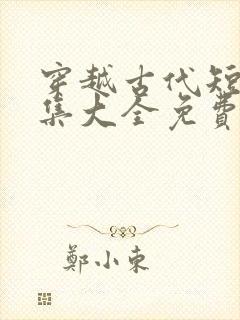 穿越古代短
集大全免費
鄭小東